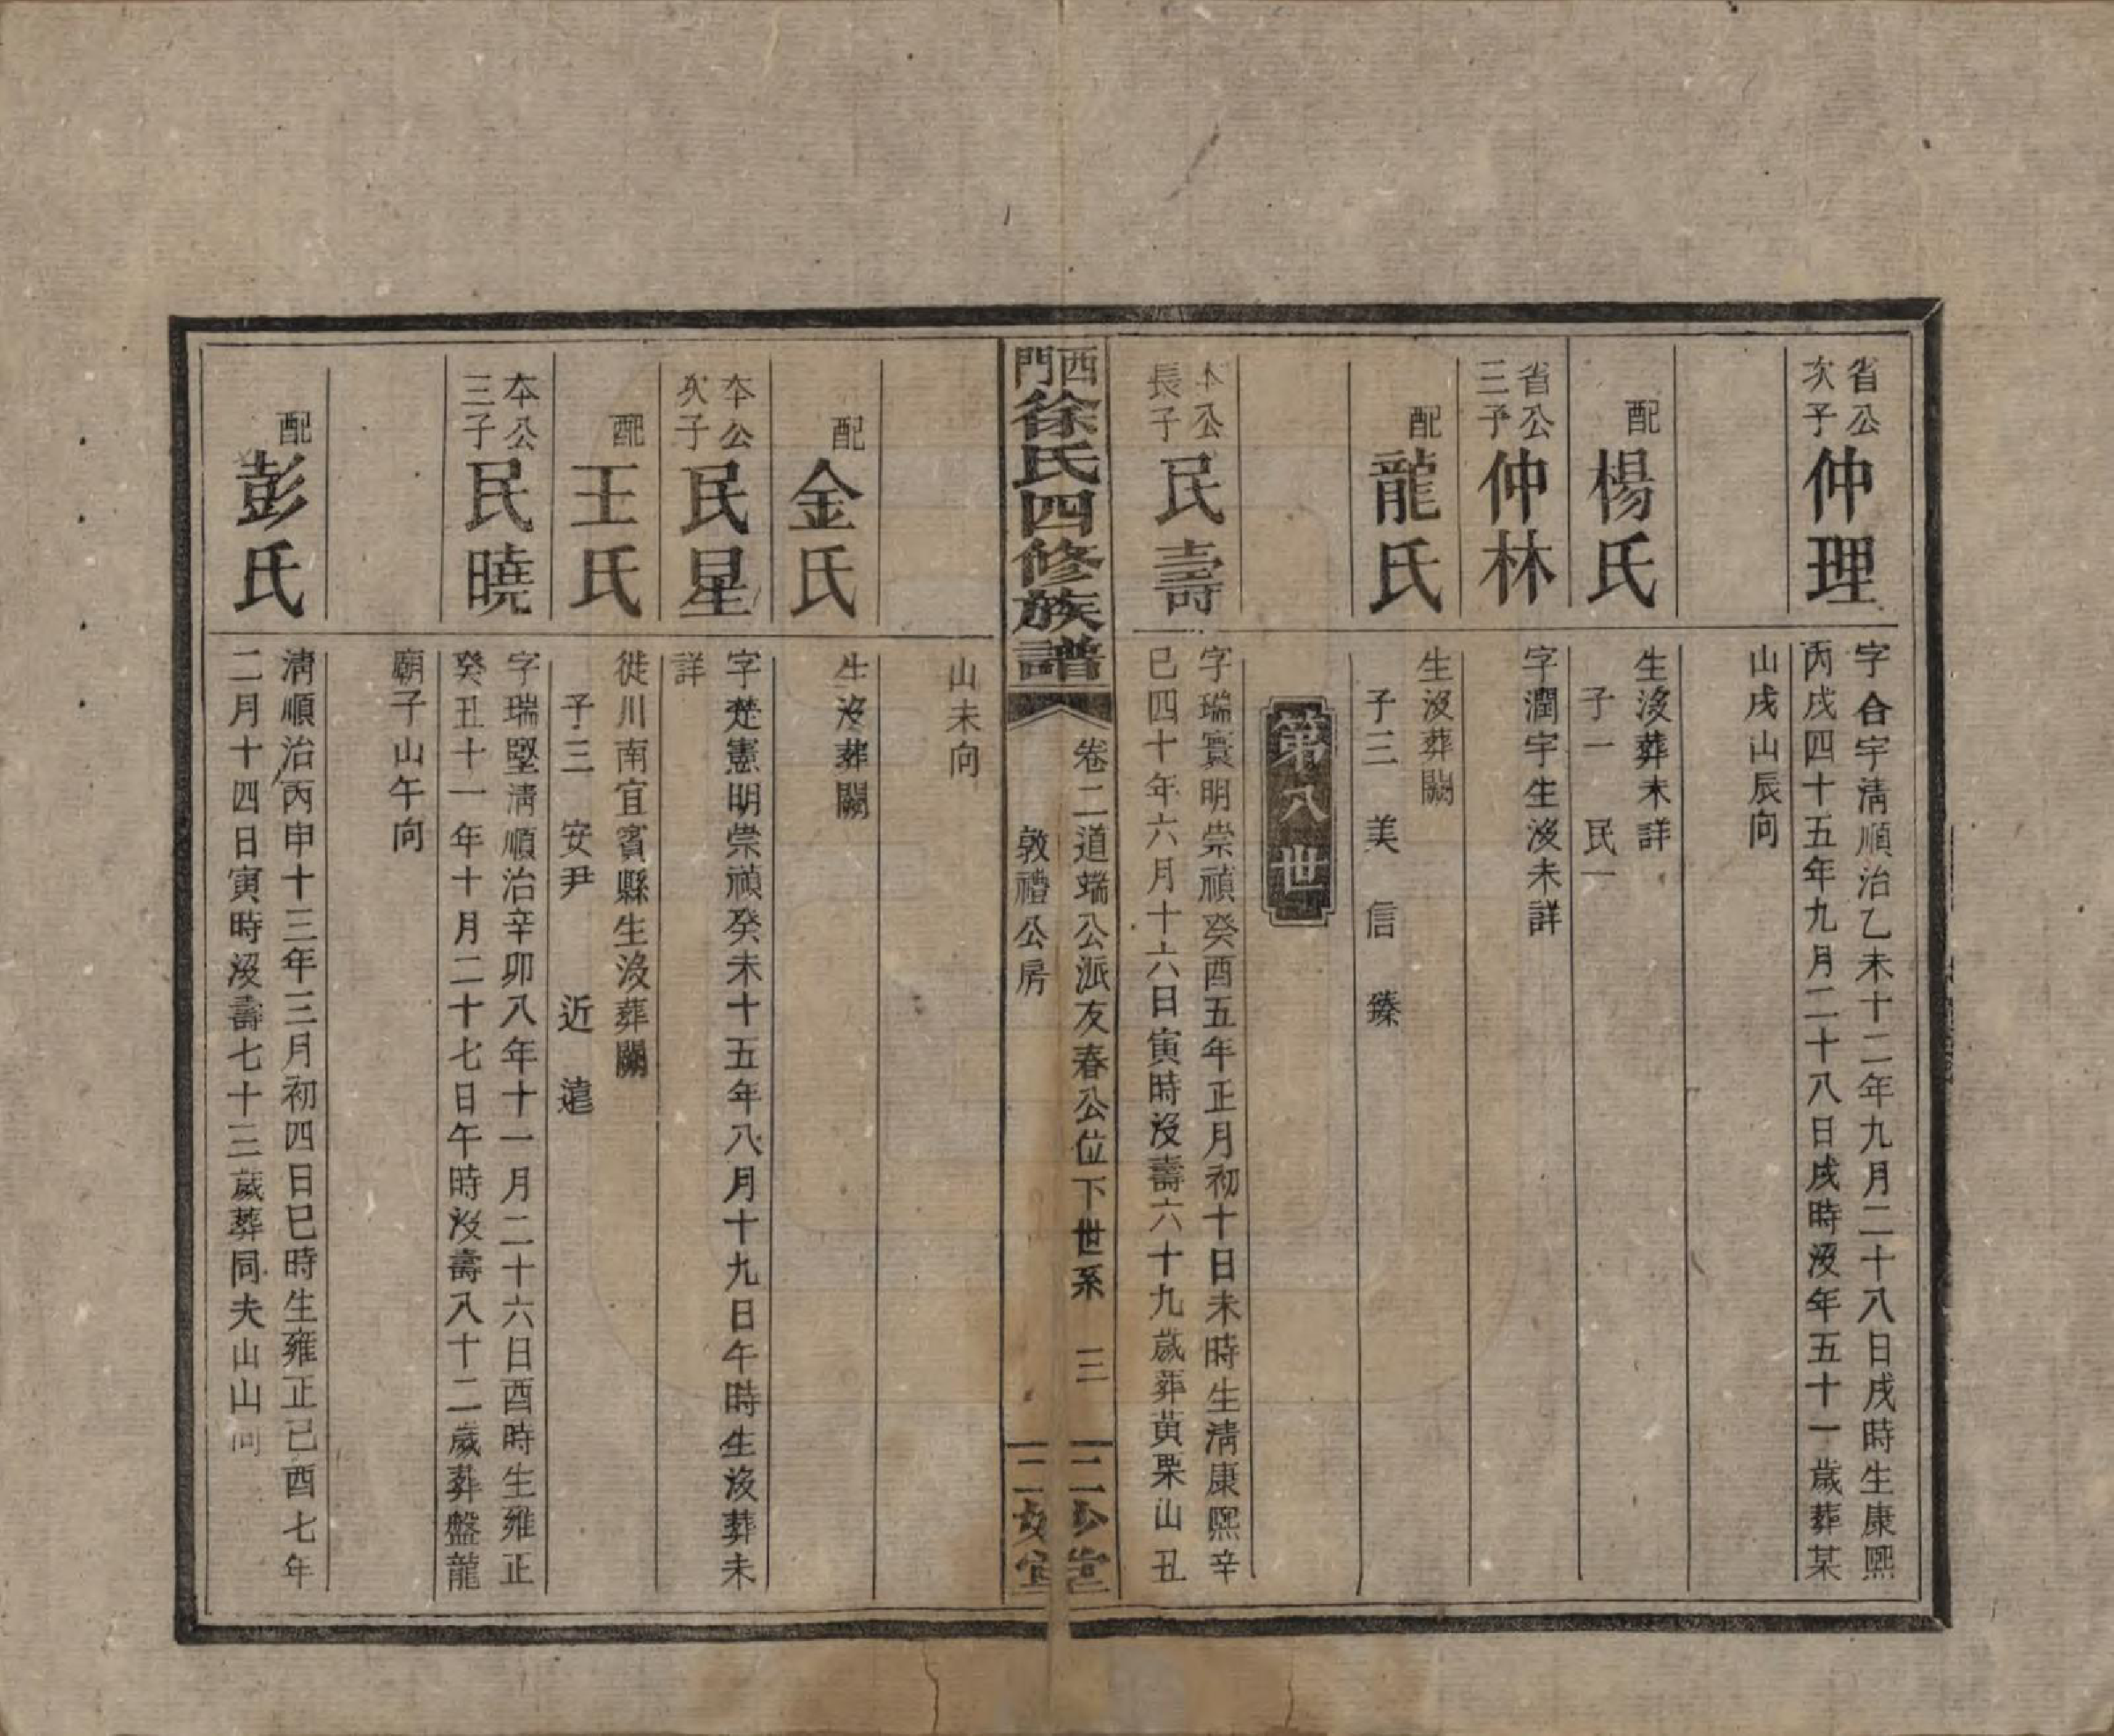 省公
次子
仲理
字合宇淸順治乙未十二年九月二十八日戌時生康熙
丙戌四十五年九月二十八日戌時没年五十一歲葬某
山戌山辰向
配
楊氏
生没葬未詳
子一 民一
省公
三子
仲林
字潤宇生没未詳
配
龍氏
生没葬闕
子三 美 信 臻
第八世
本公
長子
民壽
字瑞寰明崇禎癸酉五年正月初十日未時生淸康熙辛
巳四十年六月十六日寅時没壽六十九歲葬黃栗山丑
西門徐氏四修族譜
卷二道端公派友春公位下世系 三
敦禮公房
山未向
配
金氏
生没葬闕
本公
次子
民星
字楚憲明崇禎癸未十五年八月十九日午時生没葬未
詳
配
王氏
徙川南宜賓縣生没葬闕
子三 安尹 近 遠
本公
三子
民曉
字瑞堅淸順治辛卯八年十一月二十六日酉時生雍正
癸丑十一年十月二十七日午時没壽八十二歲葬盤龍
廟子山午向
配
彭氏
淸順治丙申十三年三月初四日巳時生雍正己酉七年
二月十四日寅時没壽七十三歲葬同夫山山向